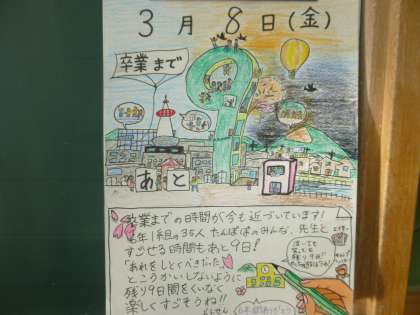 3月8日(金)
卒業まで
9
あと
日
卒業までの時間が今も近づいています!
6年1組の35人、たんぽぽのみんな、先生と
すごせる時間もあと9日!
「あれをしとくべきだった」
とこうかいしないように
残り9日間をくいなく
楽しくすごそうね!!
6年間ありがとう